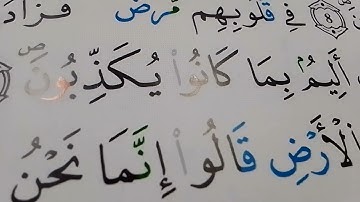 ٨ فِي قُلُوبِهِم مَّرَضٌ فَزَادَ
أَلِيمٌۢ بِمَا كَانُوا۟ يُكَذِّبُونَ
ٱلْأَرْضِ قَالُوٓا۟ إِنَّمَا نَحْنُ